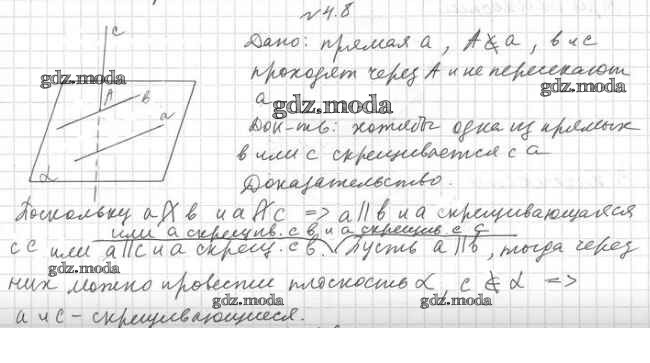 № 4.8
Дано: прямая a, A∉a, b и c
проходят через A и не пересекают
a
Док-ть: хотябы одна из прямых
b или c скрещивается с a
Доказательство.
Поскольку a ∦ b и a ∦ c => a||b и a скрещивающаяся
или a скрещив. с b и a скрещив с c
с c или a||c и a скрещ. с b. Пусть a||b, тогда через
них можно провести плоскость α, c ⊄ α =>
a и c - скрещивающиеся.
c
A
b
a
α
gdz.moda
gdz.moda
gdz.moda
gdz.moda
gdz.moda
gdz.moda
gdz.moda